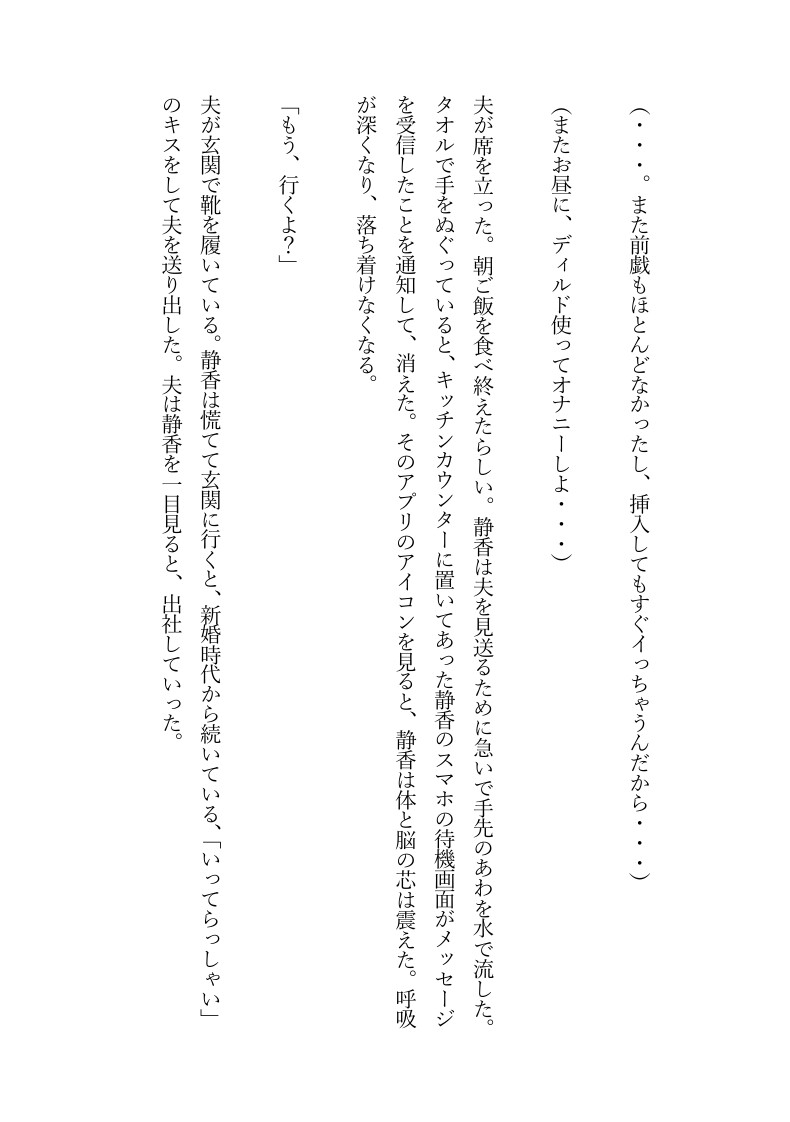 (・・・。また前戯もほとんどなかったし、挿入してもすぐイっちゃうんだから・・・)
(またお昼に、ディルド使ってオナニーしよ・・・)
夫が席を立った。朝ご飯を食べ終えたらしい。静香は夫を見送るために急いで手先のあわを水で流した。
タオルで手をぬぐっていると、キッチンカウンターに置いてあった静香のスマホの待機画面がメッセージ
を受信したことを通知して、消えた。そのアプリのアイコンを見ると、静香は体と脳の芯は震えた。呼吸
が深くなり、落ち着けなくなる。
「もう、行くよ?」
夫が玄関で靴を履いている。静香は慌てて玄関に行くと、新婚時代から続いている、「いってらっしゃい」
のキスをして夫を送り出した。夫は静香を一目見ると、出社していった。